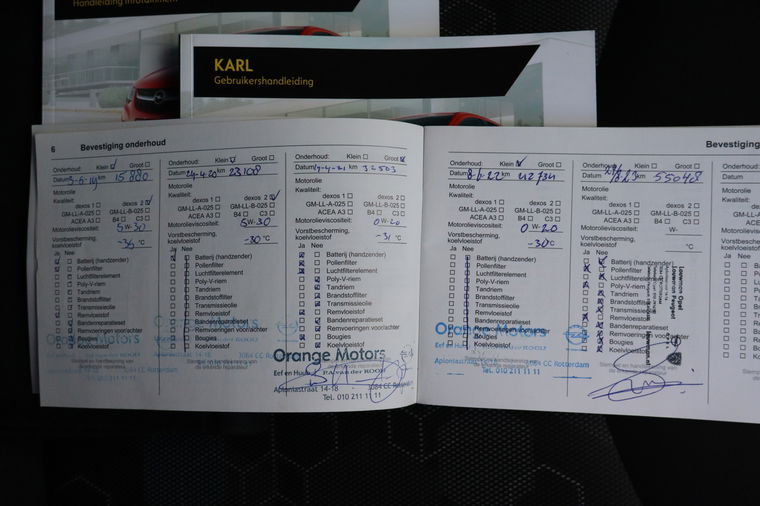 Handleiding Infotainment
KARL
Gebruikershandleiding
6 Bevestiging onderhoud
Onderhoud: Klein Groot
Datum 5-6-19 km 15880
Motorolie
Kwaliteit:
dexos 1 dexos 2
GM-LL-A-025 GM-LL-B-025
ACEA A3 B4 C3
Motorolieviscositeit: 5W-30
Vorstbescherming,
koelvloeistof °C
Ja Nee
Batterij (handzender)
Pollenfilter
Luchtfilterelement
Poly-V-riem
Tandriem
Brandstoffilter
Transmissieolie
Remvloeistof
Bandenreparatieset
Remvoeringen voor/achter
Bougies
Koelvloeistof
Onderhoud: Klein Groot
Datum 24-4-20 km 23108
Motorolie
Kwaliteit:
dexos 1 dexos 2
GM-LL-A-025 GM-LL-B-025
ACEA A3 B4 C3
Motorolieviscositeit: 5W-30
Vorstbescherming,
koelvloeistof -30 °C
Ja Nee
Batterij (handzender)
Pollenfilter
Luchtfilterelement
Poly-V-riem
Tandriem
Brandstoffilter
Transmissieolie
Remvloeistof
Bandenreparatieset
Remvoeringen voor/achter
Bougies
Koelvloeistof
Onderhoud: Klein Groot
Datum km 32503
Motorolie
Kwaliteit:
dexos 1 dexos 2
GM-LL-A-025 GM-LL-B-025
ACEA A3 B4 C3
Motorolieviscositeit: 0W-20
Vorstbescherming,
koelvloeistof -31 °C
Ja Nee
Batterij (handzender)
Pollenfilter
Luchtfilterelement
Poly-V-riem
Tandriem
Brandstoffilter
Transmissieolie
Remvloeistof
Bandenreparatieset
Remvoeringen voor/achter
Bougies
Koelvloeistof
Orange Motors
Aploniastraat 14-18 3084 CC
Tel. 010 211 11 11
Bevestiging
Onderhoud: Klein Groot
Datum km 42731
Motorolie
Kwaliteit:
dexos 1 dexos 2
GM-LL-A-025 GM-LL-B-025
ACEA A3 B4 C3
Motorolieviscositeit: 0W-20
Vorstbescherming,
koelvloeistof -30 °C
Ja Nee
Batterij (handzender)
Pollenfilter
Luchtfilterelement
Poly-V-riem
Tandriem
Brandstoffilter
Transmissieolie
Remvloeistof
Bandenreparatieset
Remvoeringen voor/achter
Bougies
Koelvloeistof
Orange Motors
Aploniastraat 3084 CC Rotterdam
Tel. 010 211 11 11
Onderhoud: Klein Groot
Datum km 55048
Motorolie
Kwaliteit:
dexos 1 dexos 2
GM-LL-A-025 GM-LL-B-025
ACEA A3 B4 C3
Motorolieviscositeit: W-
Vorstbescherming,
koelvloeistof °C
Ja Nee
Batterij (handzender)
Pollenfilter
Luchtfilterelement
Poly-V-riem
Tandriem
Brandstoffilter
Transmissieolie
Remvloeistof
Bandenreparatieset
Remvoeringen voor/achter
Bougies
Koelvloeistof
Louwman Opel
Louwman Peugeot
Stempel en handtekening van
de erkende reparateur
Onderhoud:
Datum
Motorolie
Kwaliteit:
Motorolieviscositeit
Vorstbescherming
koelvloeistof
Ja Nee